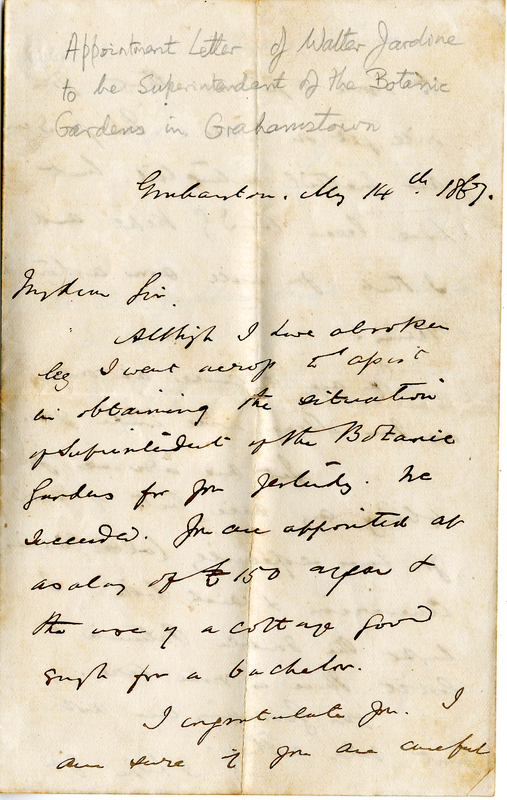 Appointment Letter of Walter Jardine
to be Superintendant of the Botanic
Gardens in Grahamstown
Grahamstown. May 14th 1867.
My dear Sir
Although I have a broken
leg I went across to assist
in obtaining the situation
of Superintendent of the Botanic
Gardens for you yesterday. We
succeeded. You are appointed at
a salary of £150 a year &
the use of a cottage good
enough for a bachelor.
I congratulate you. I
am sure if you are careful